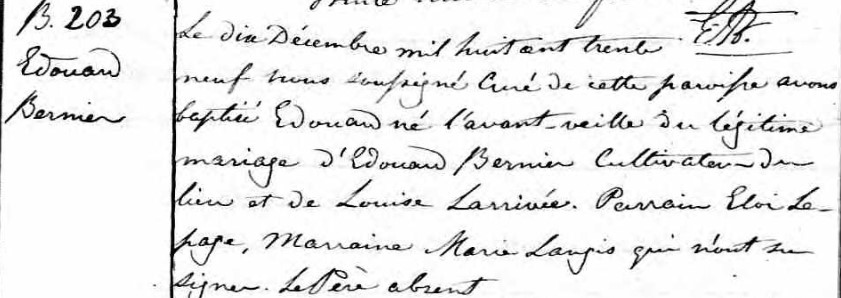 B. 203
Edouard
Bernier
Le dix Décembre mil huit cent trente
neuf nous soussigné Curé de cette paroisse avons
baptisé Edouard né l'avant-veille du légitime
mariage d'Edouard Bernier Cultivateur du
lieu et de Louise Larrivée. Parrain Eloi Le-
page, Marraine Marie Langis qui n'ont su
signer. Le Père absent